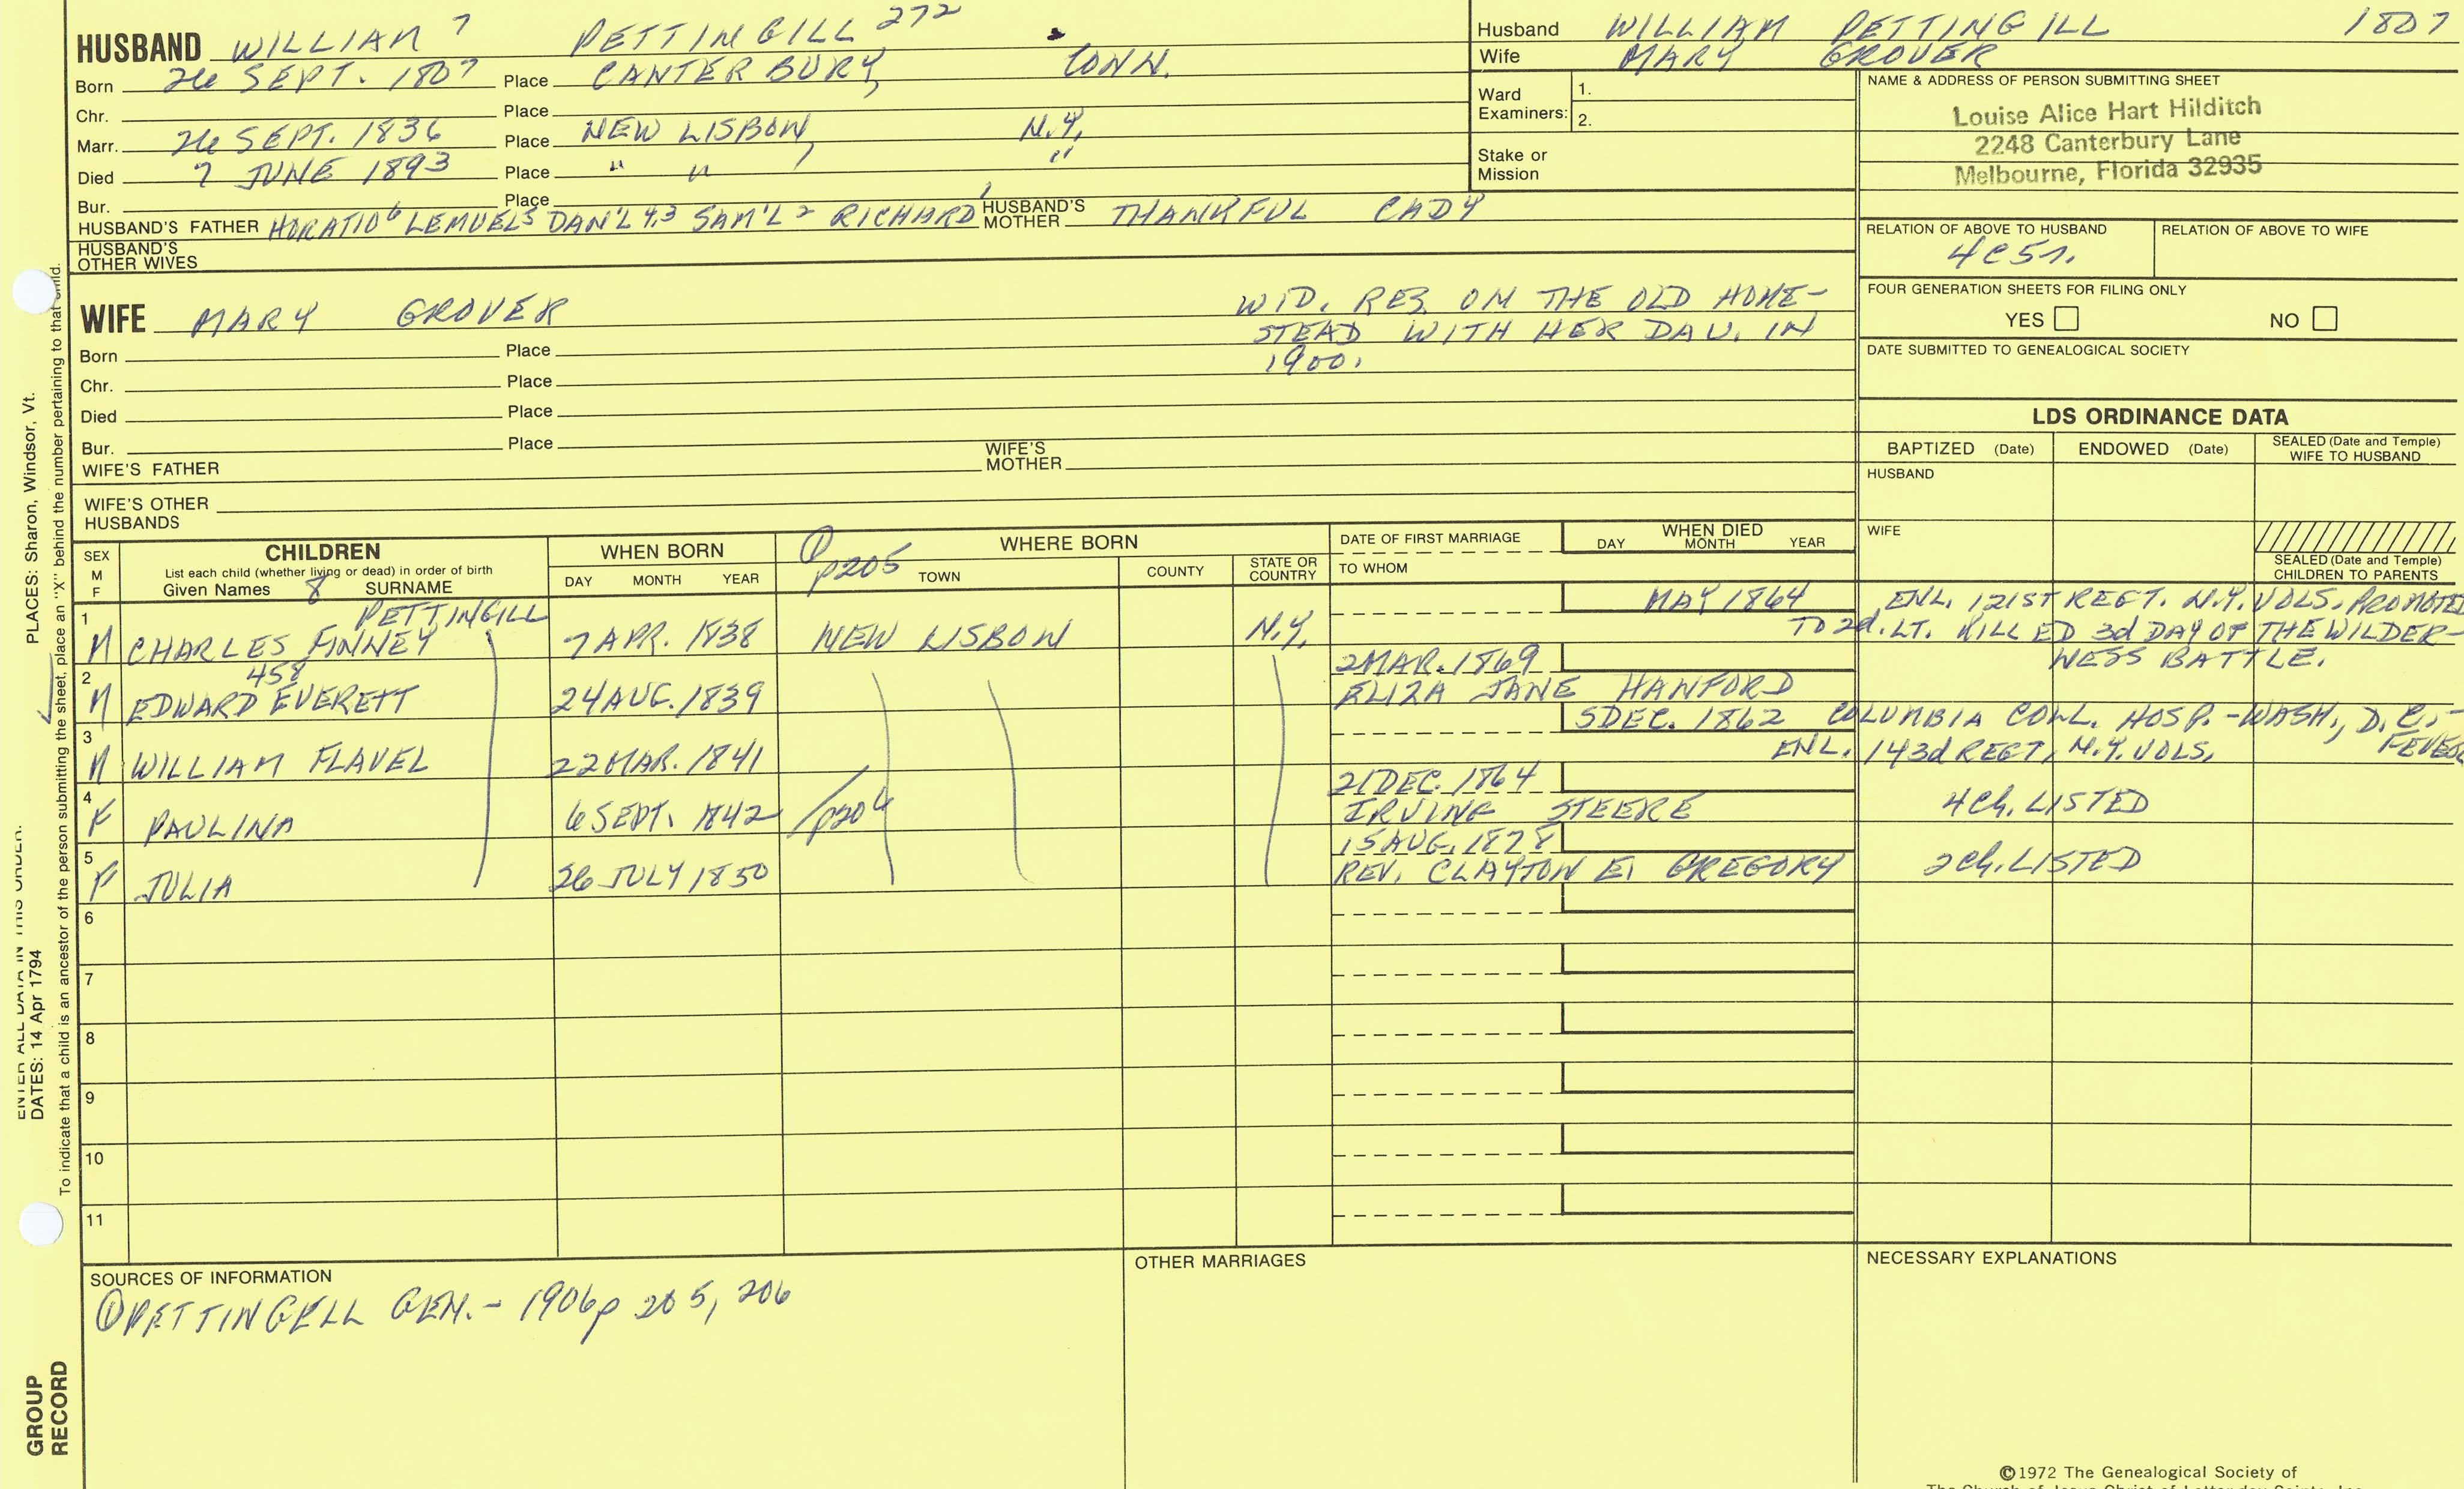 HUSBAND WILLIAM 7 PETTINGILL 272
Born 26 SEPT. 1807 Place CANTERBURY, CONN.
Chr. Place
Marr. 26 SEPT. 1836 Place NEW LISBON, N.Y.
Died 7 JUNE 1893 Place " " "
Bur. Place
HUSBAND'S FATHER HORATIO 6 LEMUEL 5 DAN'L 4,3 SAM'L 2 RICHARD 1 HUSBAND'S MOTHER THANKFUL CADY
HUSBAND'S OTHER WIVES
WIFE MARY GROVER
WID. RES. ON THE OLD HOME-
STEAD WITH HER DAU. IN
1900.
Born Place
Chr. Place
Died Place
Bur. Place
WIFE'S FATHER WIFE'S MOTHER
WIFE'S OTHER HUSBANDS
Husband WILLIAM PETTINGILL 1807
Wife MARY GROVER
Ward Examiners: 1.
2.
Stake or Mission
NAME & ADDRESS OF PERSON SUBMITTING SHEET
Louise Alice Hart Hilditch
2248 Canterbury Lane
Melbourne, Florida 32935
RELATION OF ABOVE TO HUSBAND RELATION OF ABOVE TO WIFE
4C5r.
FOUR GENERATION SHEETS FOR FILING ONLY
YES NO
DATE SUBMITTED TO GENEALOGICAL SOCIETY
LDS ORDINANCE DATA
BAPTIZED (Date) ENDOWED (Date) SEALED (Date and Temple) WIFE TO HUSBAND
HUSBAND
WIFE
SEALED (Date and Temple) CHILDREN TO PARENTS
SEX M F
CHILDREN
List each child (whether living or dead) in order of birth
Given Names 8 SURNAME
WHEN BORN
DAY MONTH YEAR
p205
WHERE BORN
TOWN COUNTY STATE OR COUNTRY
DATE OF FIRST MARRIAGE
TO WHOM
WHEN DIED
DAY MONTH YEAR
PETTINGILL
1 M CHARLES FINNEY 7 APR. 1838 NEW LISBON N.Y. MAY 1864 ENL. 121ST REGT. N.Y. VOLS. PROMOTED
TO 2d. LT. KILLED 3d DAY OF THE WILDER-
NESS BATTLE.
458
2 M EDWARD EVERETT 24 AUG. 1839 2 MAR. 1869
ELIZA JANE HANFORD
3 M WILLIAM FLAVEL 22 MAR. 1841 5 DEC. 1862 COLUMBIA COLL. HOSP. - WASH., D.C. -
FEVER
ENL. 143d REGT, N.Y. VOLS.
4 F PAULINA 6 SEPT. 1842 p206 21 DEC. 1864
IRVING STEERE 4 Ch. LISTED
5 F JULIA 26 JULY 1850 15 AUG. 1878
REV. CLAYTON E. GREGORY 2 Ch. LISTED
6
7
8
9
10
11
SOURCES OF INFORMATION
① PETTINGELL GEN. - 1906 p 205, 206
OTHER MARRIAGES
NECESSARY EXPLANATIONS
©1972 The Genealogical Society of
The Church of Jesus Christ of Latter-day Saints, Inc.
PLACES: Sharon, Windsor, Vt.
ENTER ALL DATA IN THIS ORDER:
DATES: 14 Apr 1794
To indicate that a child is an ancestor of the person submitting the sheet, place an "X" behind the number pertaining to that child.
GROUP
RECORD